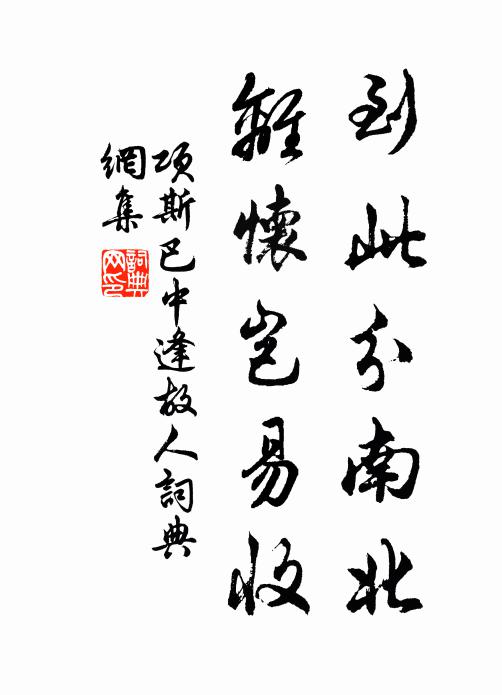 到此分南北
離懷豈易收
項斯巴中逢故人詞典
網集
詞典
网印